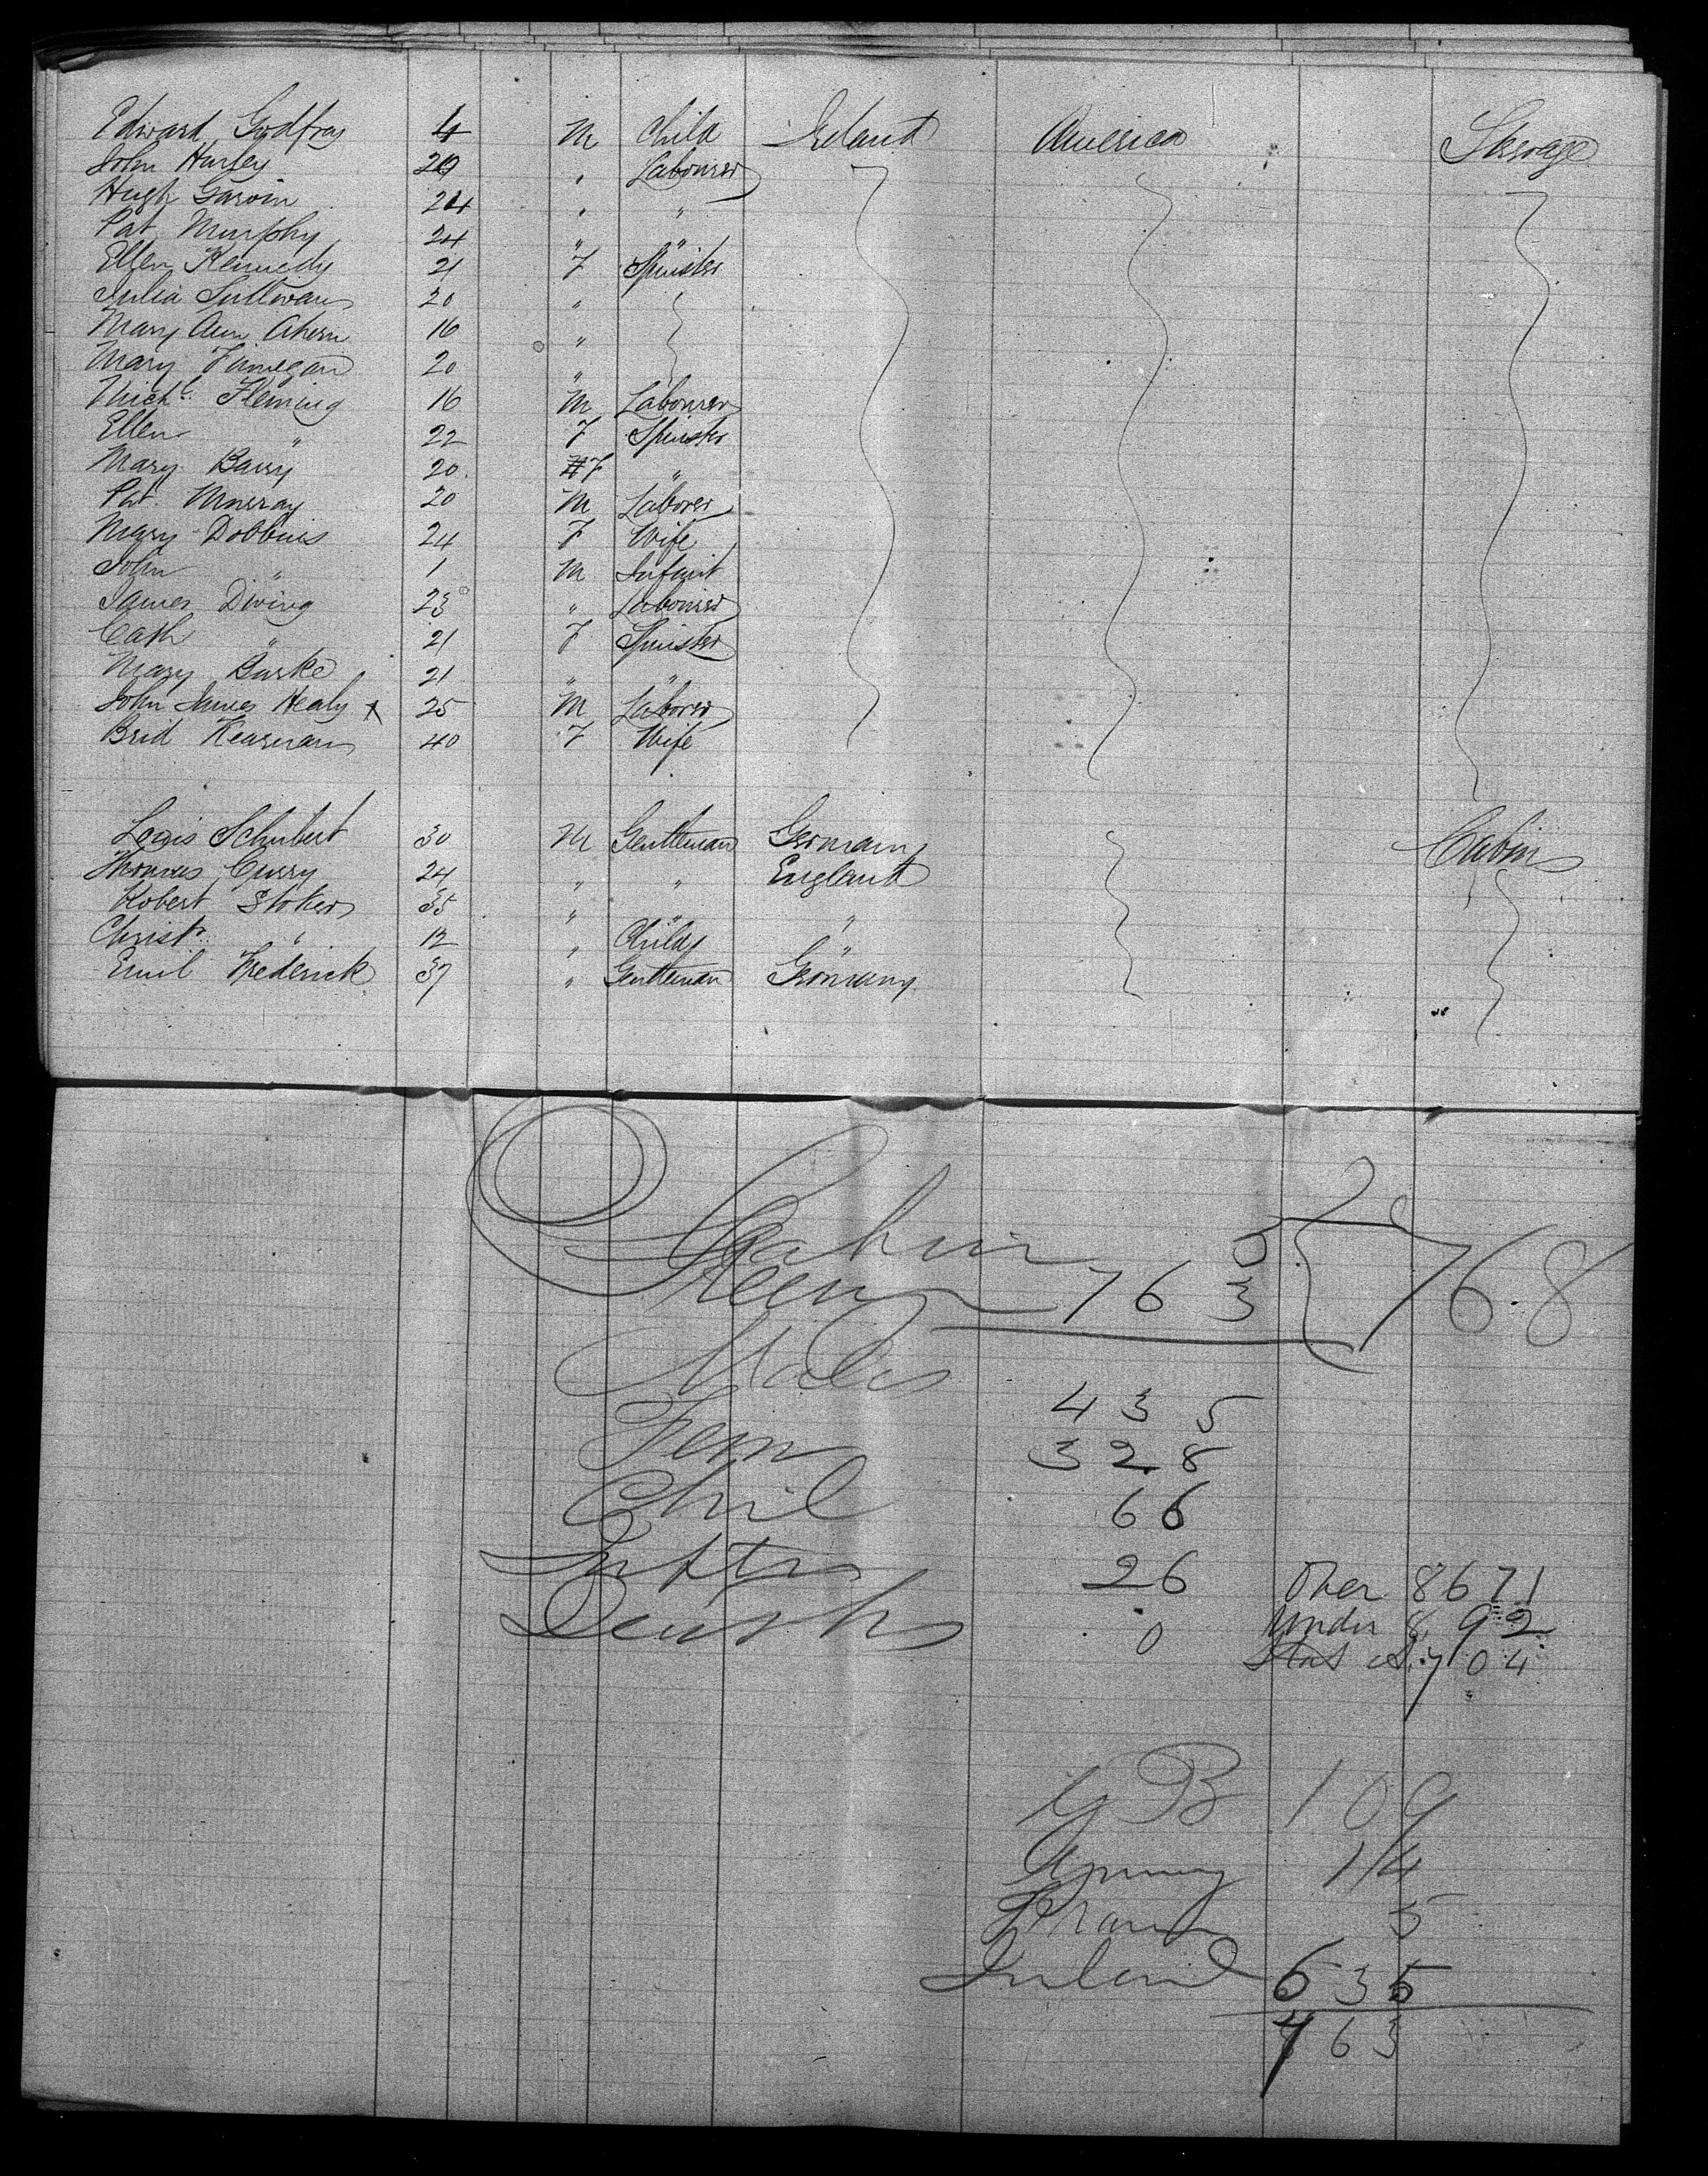 Edward Godfrey 4 M Child Ireland America Steerage
John Hurley 20 " Labourer
Hugh Garvin 24 " "
Pat Murphy 24 " "
Ellen Kennedy 21 F Spinster
Julia Sullivan 20 "
Mary Ann Ahern 16 "
Mary Finnegan 20 "
Michl. Fleming 16 M Labourer
Ellen " 22 F Spinster
Mary Barry 20 F "
Pat Murray 20 M Laborer
Mary Dobbins 24 F Wife
John " 1 M Infant
James Diving 23 " Labourer
Cath " 21 F Spinster
Mary Burke 21 " "
John James Healy x 25 M Laborer
Brid Kearnan 40 F Wife
Louis Schubert 30 M Gentleman Germany Cabin
Thomas Curry 24 " " England
Robert Stoker 35 " " "
Christr. " 12 " Child "
Emil Frederick 37 " Gentleman Germany
Cabin 5
Steer 763 768
Males 435
Fem 328
Chil 66
Infts 26
Deaths 0
Over 8 671
Under 8 92
704
GB 109
Germany 14
France 5
Ireland 635
763